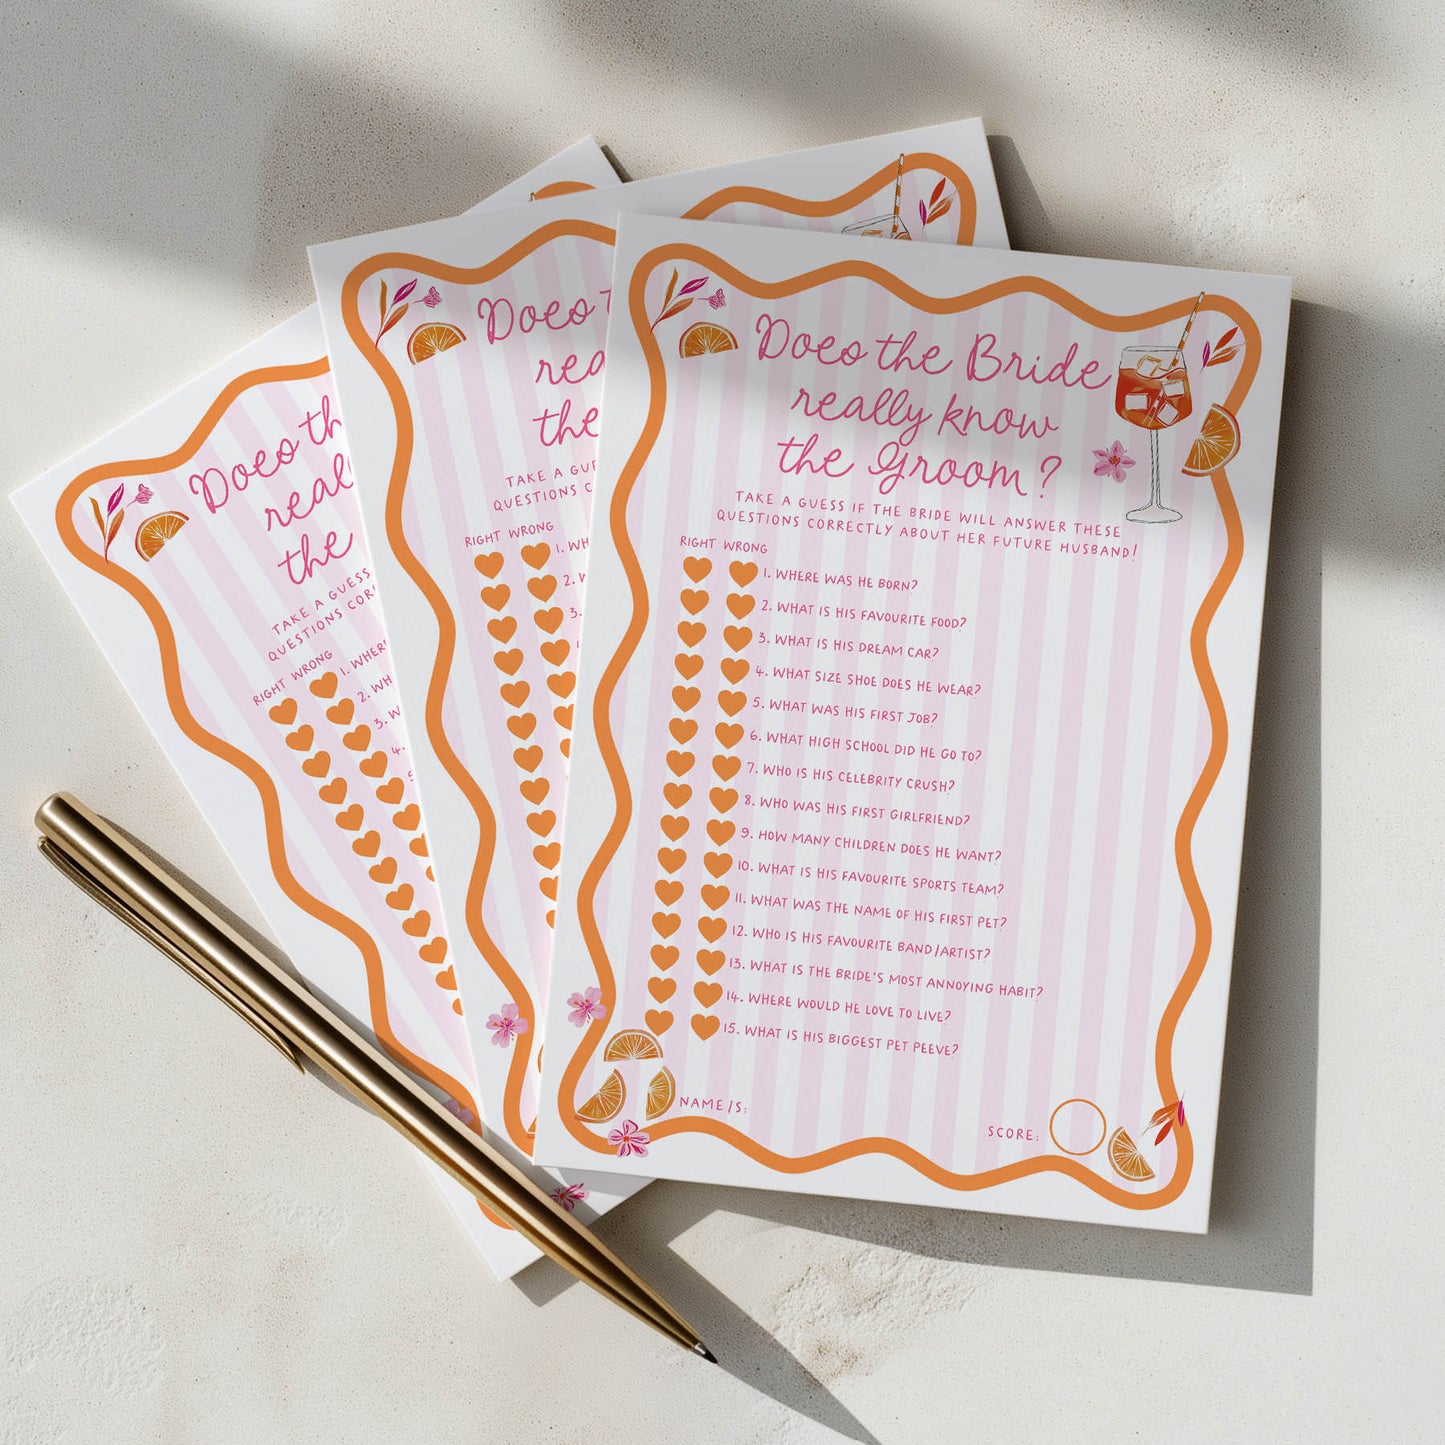 Does the Bride
really know
the Groom?
TAKE A GUESS IF THE BRIDE WILL ANSWER THESE
QUESTIONS CORRECTLY ABOUT HER FUTURE HUSBAND!
RIGHT WRONG
1. WHERE WAS HE BORN?
2. WHAT IS HIS FAVOURITE FOOD?
3. WHAT IS HIS DREAM CAR?
4. WHAT SIZE SHOE DOES HE WEAR?
5. WHAT WAS HIS FIRST JOB?
6. WHAT HIGH SCHOOL DID HE GO TO?
7. WHO IS HIS CELEBRITY CRUSH?
8. WHO WAS HIS FIRST GIRLFRIEND?
9. HOW MANY CHILDREN DOES HE WANT?
10. WHAT IS HIS FAVOURITE SPORTS TEAM?
11. WHAT WAS THE NAME OF HIS FIRST PET?
12. WHO IS HIS FAVOURITE BAND/ARTIST?
13. WHAT IS THE BRIDE'S MOST ANNOYING HABIT?
14. WHERE WOULD HE LOVE TO LIVE?
15. WHAT IS HIS BIGGEST PET PEEVE?
NAME/S:
SCORE:
Does
the
TAKE A
QUESTIONS
RIGHT WRONG
1.
2.
3.
Does
the
TAKE A GUESS
QUESTIONS
RIGHT WRONG
1.
2.
3.
4.